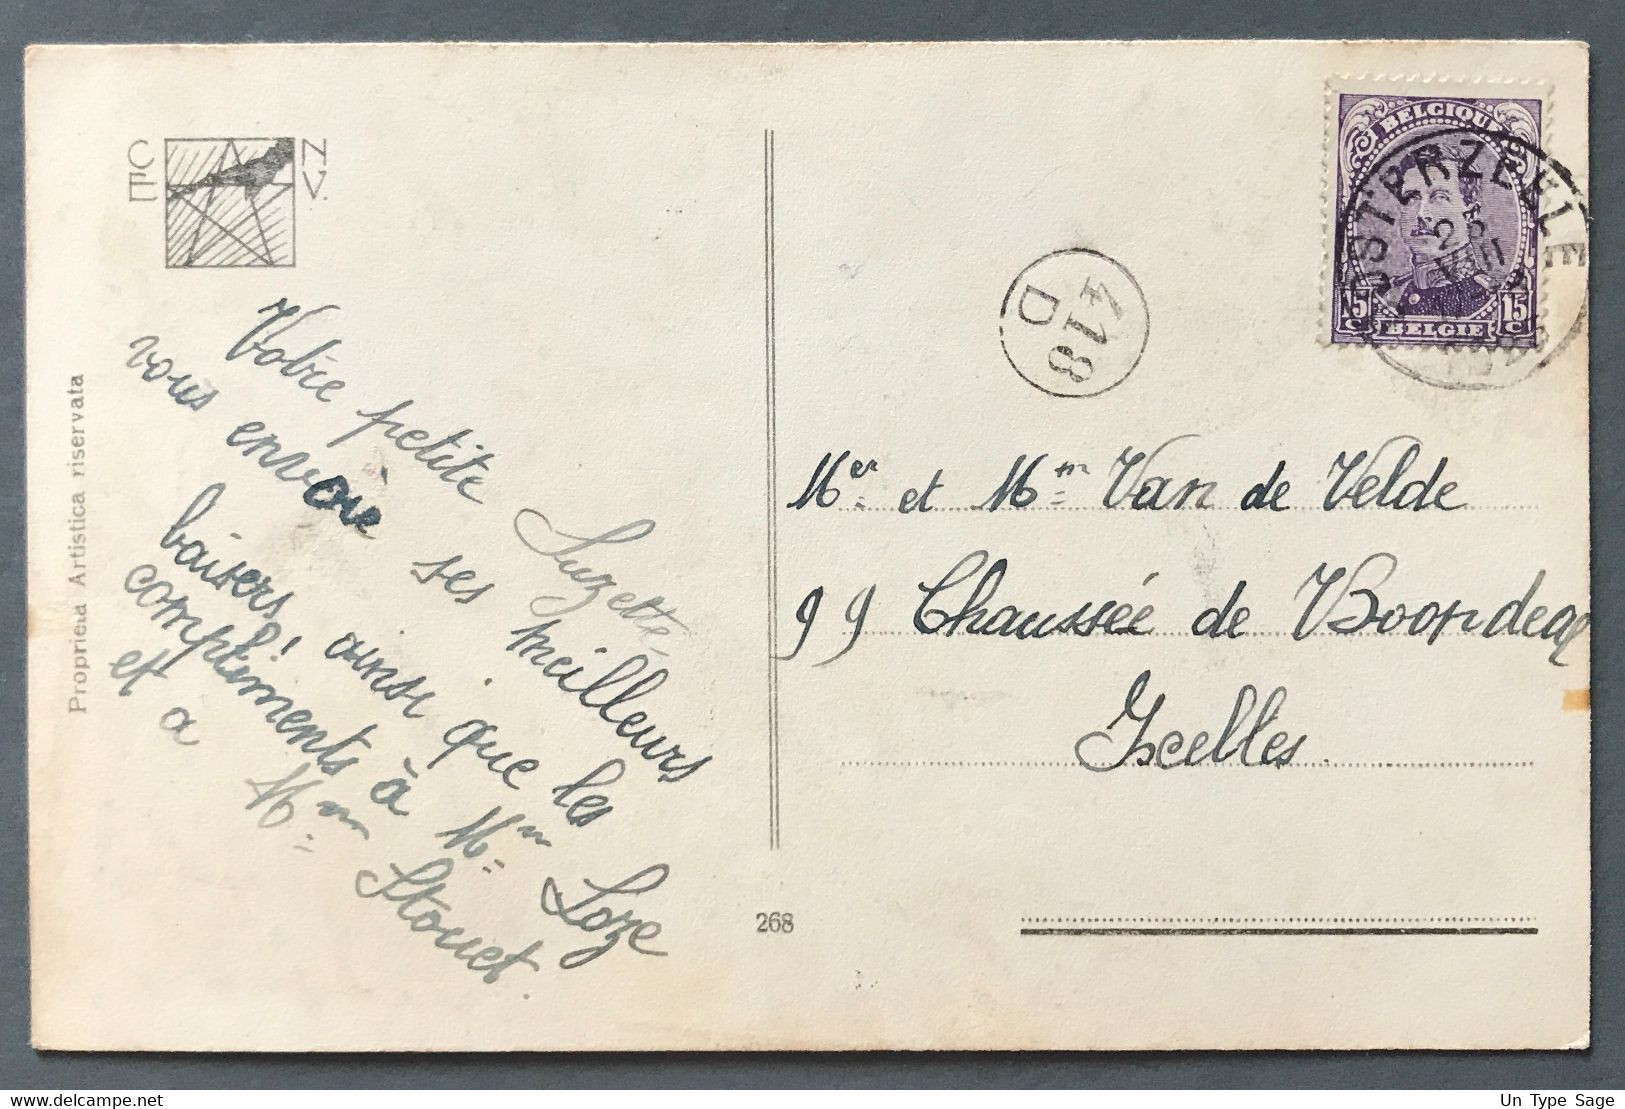 C N
E V.
Proprieta Artistica riservata
Votre petite Suzette,
vous envoie ses meilleurs
baisers, ainsi que les
compliments à Mm Loze
et a Mm Stouet.
268
418
D
BELGIQUE
15 C 15 C
BELGIE
OOSTERZEELE
Mer et Mm Van de Velde
99 Chaussée de Boondeal
Ixelles.
Un Type Sage
www.delcampe.net